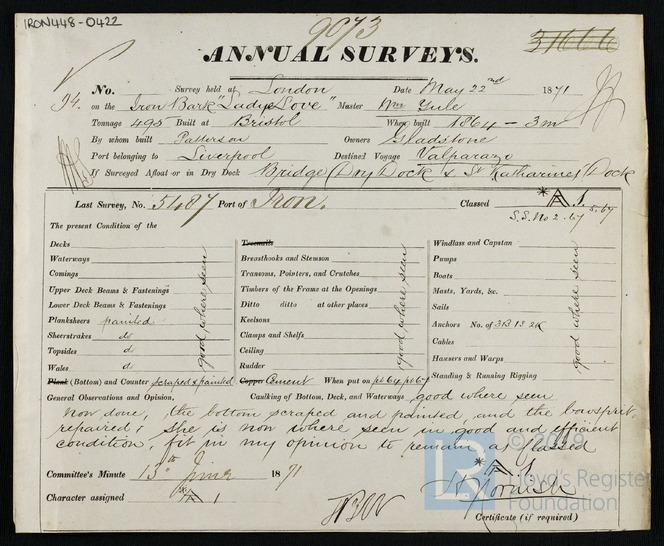 IRON448-0422
9073
31666
ANNUAL SURVEYS.
No. Survey held at London Date May 22nd 1871
94. on the Iron Bark "Ladye Love" Master Wm Yule
Tonnage 495 Built at Bristol When built 1864 - 3m
By whom built Patterson Owners Gladstone
Port belonging to Liverpool Destined Voyage Valparazo
If Surveyed Afloat or in Dry Dock Bridge Dry Dock & St Katharines Dock
Last Survey, No. 5487 Port of Iron. Classed *A 1.
S.S. No 2 - 67 5.67
The present Condition of the
Decks
Waterways
Comings
Upper Deck Beams & Fastenings
Lower Deck Beams & Fastenings
Planksheers painted
Sheerstrakes do
Topsides do
Wales do
good where seen
Plank (Bottom) and Counter scraped & painted
Treenails
Breasthooks and Stemson
Transoms, Pointers, and Crutches
Timbers of the Frame at the Openings
Ditto ditto at other places
Keelsons
Clamps and Shelfs
Ceiling
Rudder
good where seen
Copper Cement When put on pt 64 pt 67
Windlass and Capstan
Pumps
Boats
Masts, Yards, &c.
Sails
Anchors No. of 3B 1S 2K
Cables
Hawsers and Warps
Standing & Running Rigging
good where seen
General Observations and Opinion, Caulking of Bottom, Deck, and Waterways good where seen
Now done, the bottom scraped and painted, and the bowsprit
repaired; she is now where seen in good and efficient
condition, fit in my opinion to remain as classed
*A 1.
Committee's Minute 13th June 1871
Character assigned *A 1
Certificate (if required)
© 2019
Lloyd's Register
Foundation